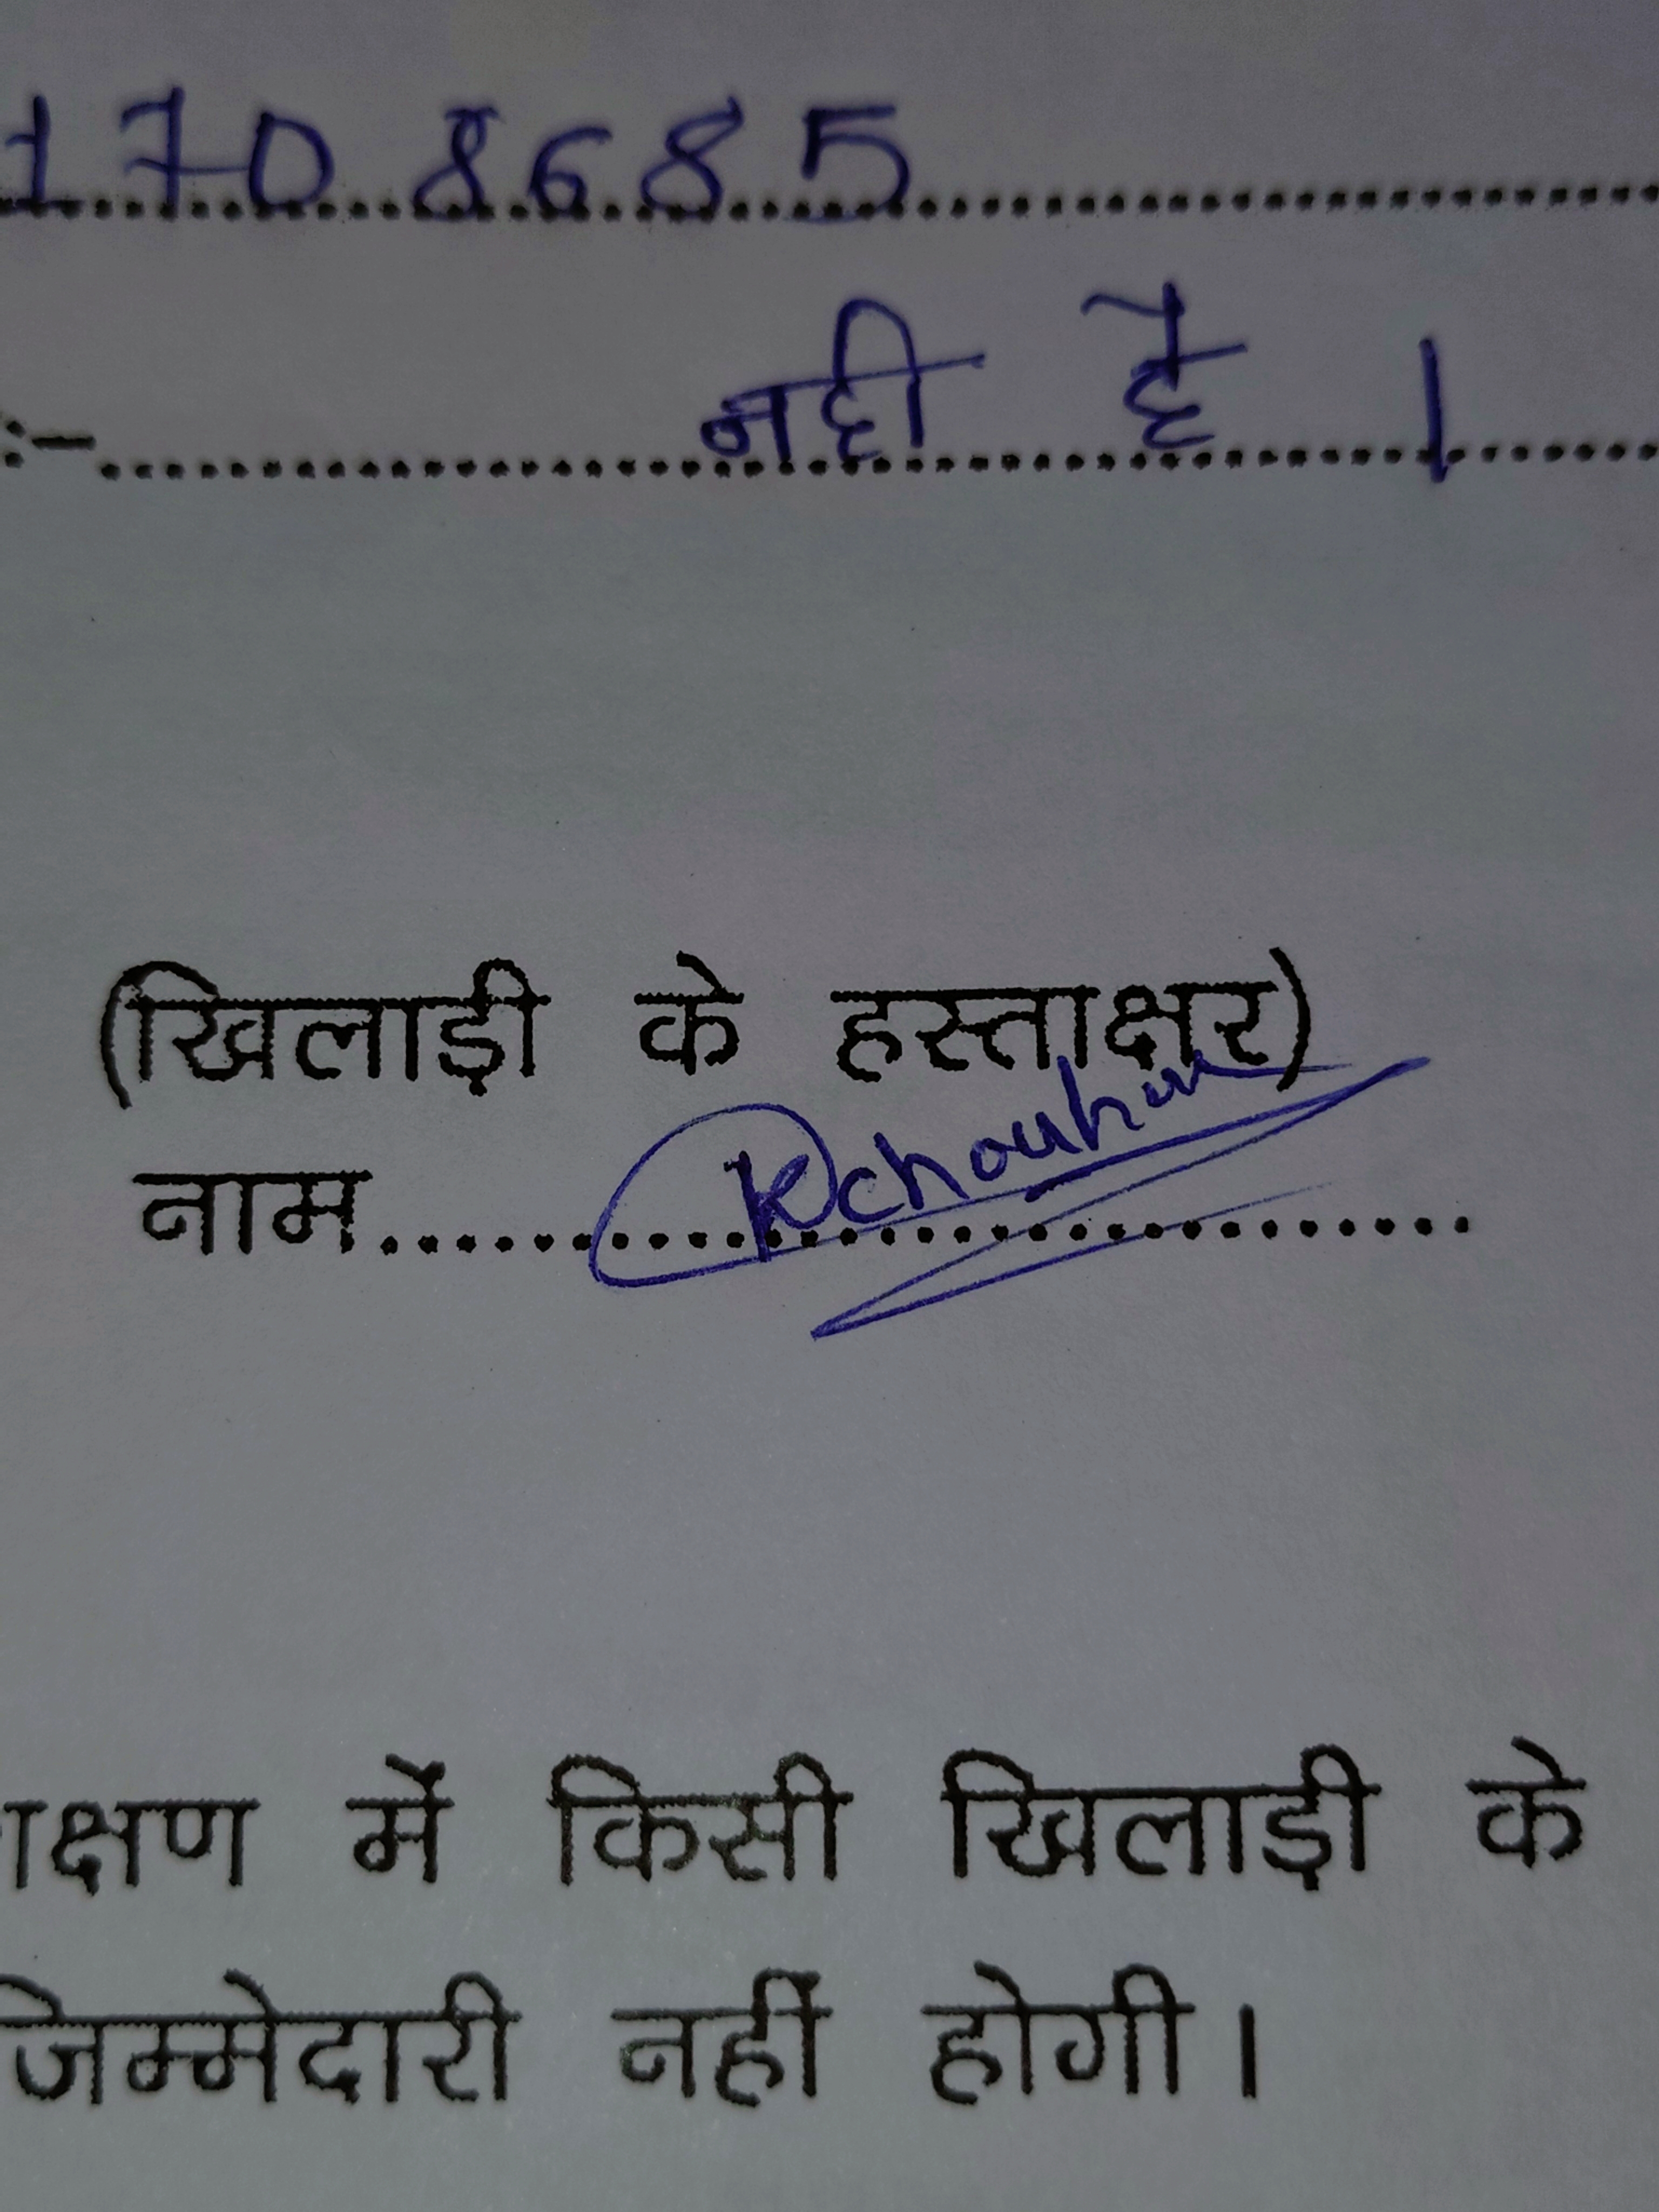 1708685
:-.......... नही है ।
(खिलाड़ी के हस्ताक्षर)
नाम.......... Kchouhan
क्षण में किसी खिलाड़ी के
जिम्मेदारी नहीं होगी।